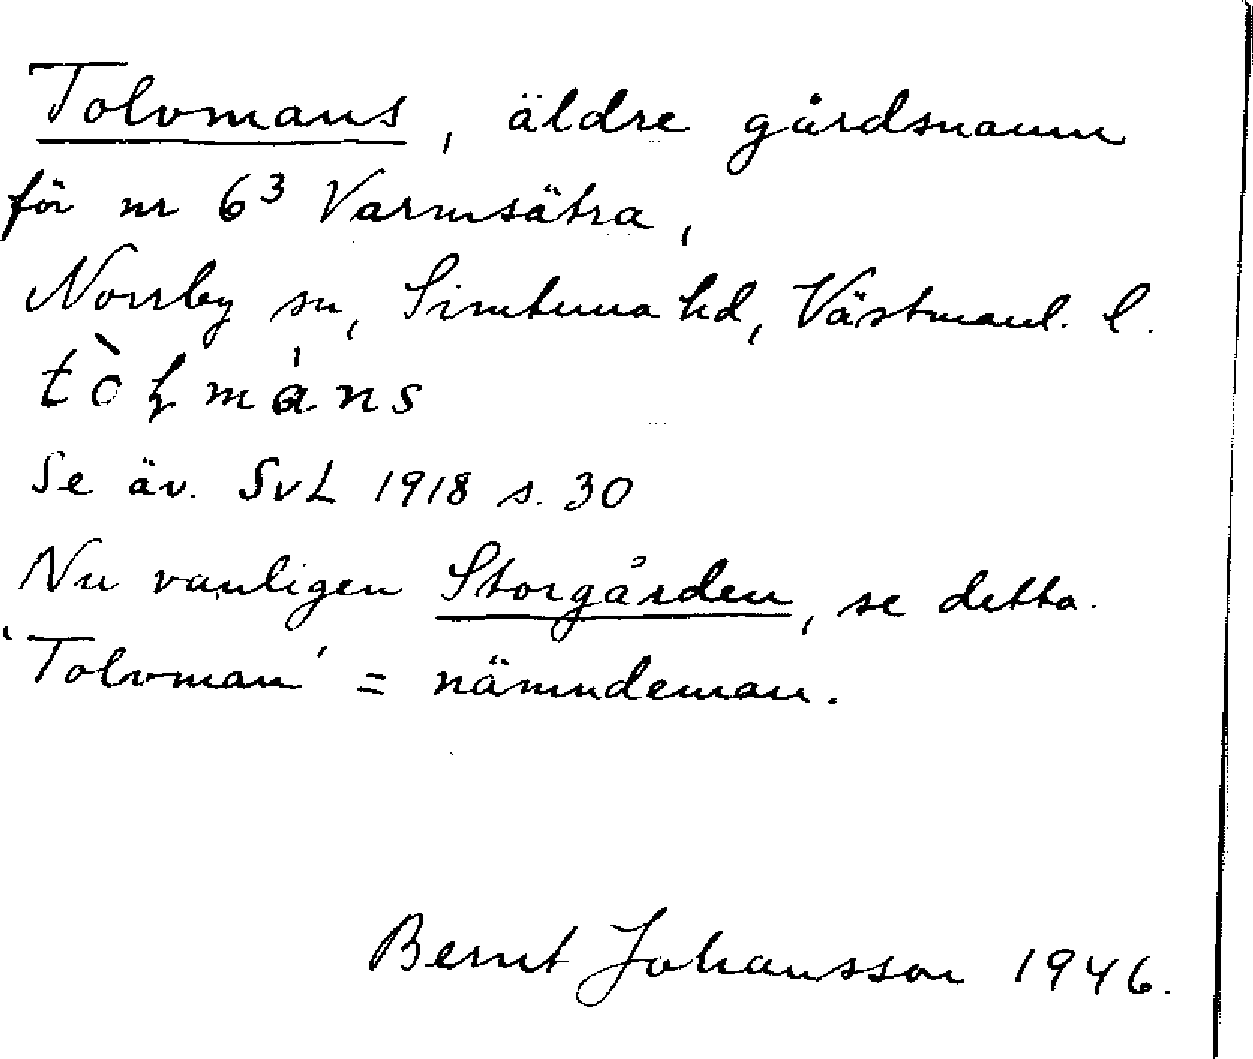 Tolvmans, äldre gårdsnamn
för nr 6³ Varmsätra,
Norrby sn, Simtuna hd, Västmanl. l.
Se äv. SvL 1918 s. 30
Nu vanligen Storgården, se detta.
'Tolvman' = nämndeman.
Bernt Johansson 1946.